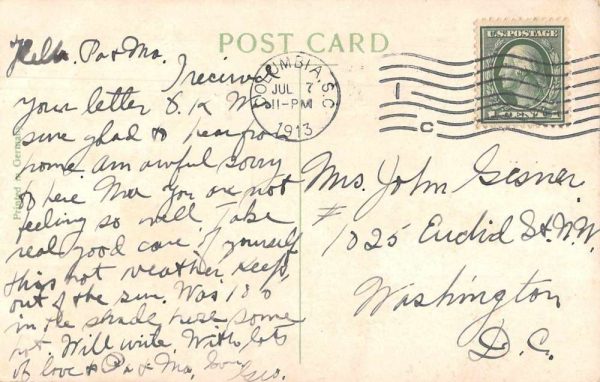 POST CARD
Printed in Germany
U.S. POSTAGE
1 CENT 1
COLUMBIA, S.C.
JUL 7
11-PM
1913
1
C
Hello. Pa & Ma.
I recived
your letter O.K. Ma
sure glad to hear from
home. am awful sorry
to here Ma You are not
feeling so well. Take
real good care of yourself
this hot weather keep
out of the sun. Was 100
in the shade here some
hot. Will write. With lots
of love to Pa & Ma,
Geo.
Mrs. John Gesner
# 1025 Euclid St. N.W.
Washington
D.C.